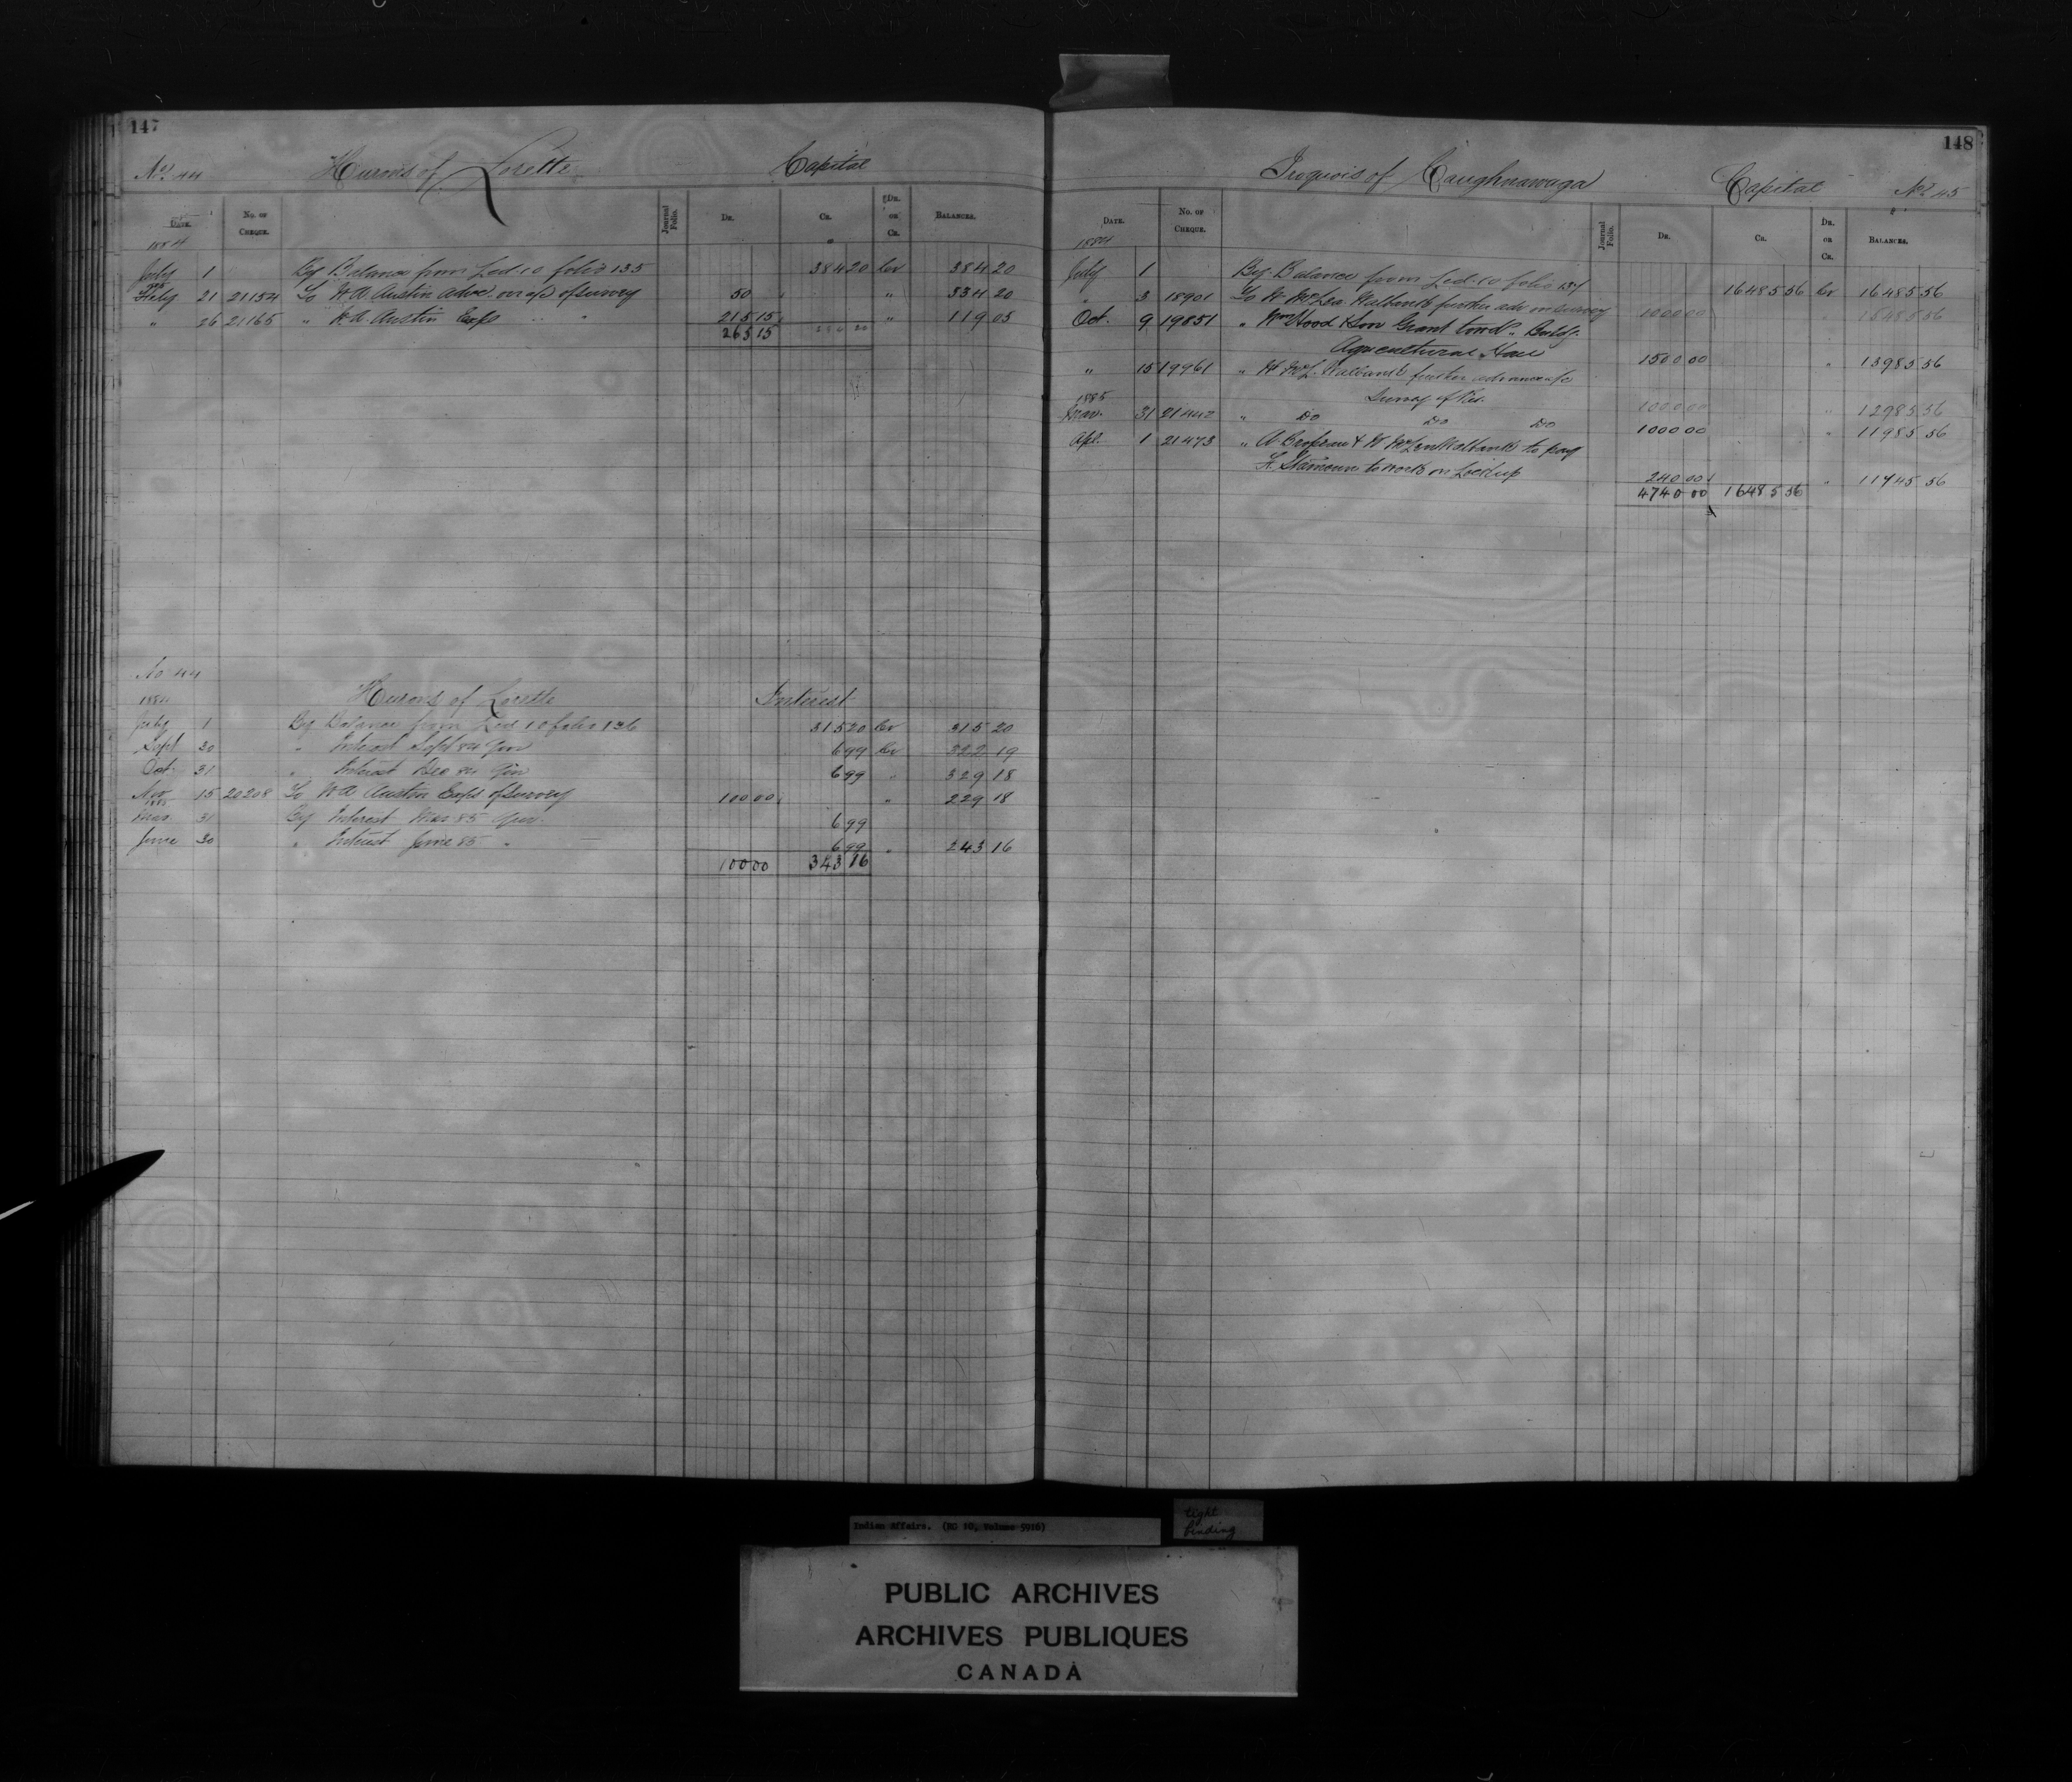 147
No. 44 Hurons of Lorette Capital
Date. No. of Cheque. Journal Folio. Dr. Cr. Dr. or Cr. Balances.
1884
July 1 By Balance from Led. 10 folio 135 384 20 Cr 384 20
1885
Feby 21 21154 To W. A. Austin advce on a/c of survey 50 " 334 20
" 26 21165 " W. A. Austin Exps " " 215 15 " 119 05
265 15 384 20
No 44
1884 Hurons of Lorette Interest
July 1 By Balance from Led 10 folio 136 315 20 Cr 315 20
Sept 30 " Interest Sept 84 Qur 6 99 Cr 322 19
Oct. 31 " Interest Dec 84 Qur 6 99 " 329 18
Nov 15 20208 To W A Austin Exps of survey 100 00 " 229 18
1885
Mar. 31 By Interest Mar 85 Qur. 6 99
June 30 " Interest June 85 " 6 99 " 243 16
100 00 343 16
148
Iroquois of Caughnawaga Capital No. 45
Date. No. of Cheque. Journal Folio. Dr. Cr. Dr. or Cr. Balances.
1884
July 1 By Balance from Led. 10 folio 137 16485 56 Cr 16485 56
" 3 18901 To W. McLea Walbank further adv on survey 1000 00 " 15485 56
Oct. 9 19851 " Wm Hood & Son Grant towds. Buildg.
Agricultural Hall 1500 00 " 13985 56
" 15 19961 " W McL. Walbank further advance a/c
Survey of Res. 1000 00 " 12985 56
1885
Mar. 31 21442 " Do Do Do 1000 00 " 11985 56
Apl. 1 21473 " A. Brosseau & W McLea Walbank to pay
to work on Lockup 240 00 " 11745 56
4740 00 16485 56
Indian Affairs. (RG 10, Volume 5916)
tight
binding
PUBLIC ARCHIVES
ARCHIVES PUBLIQUES
CANADA